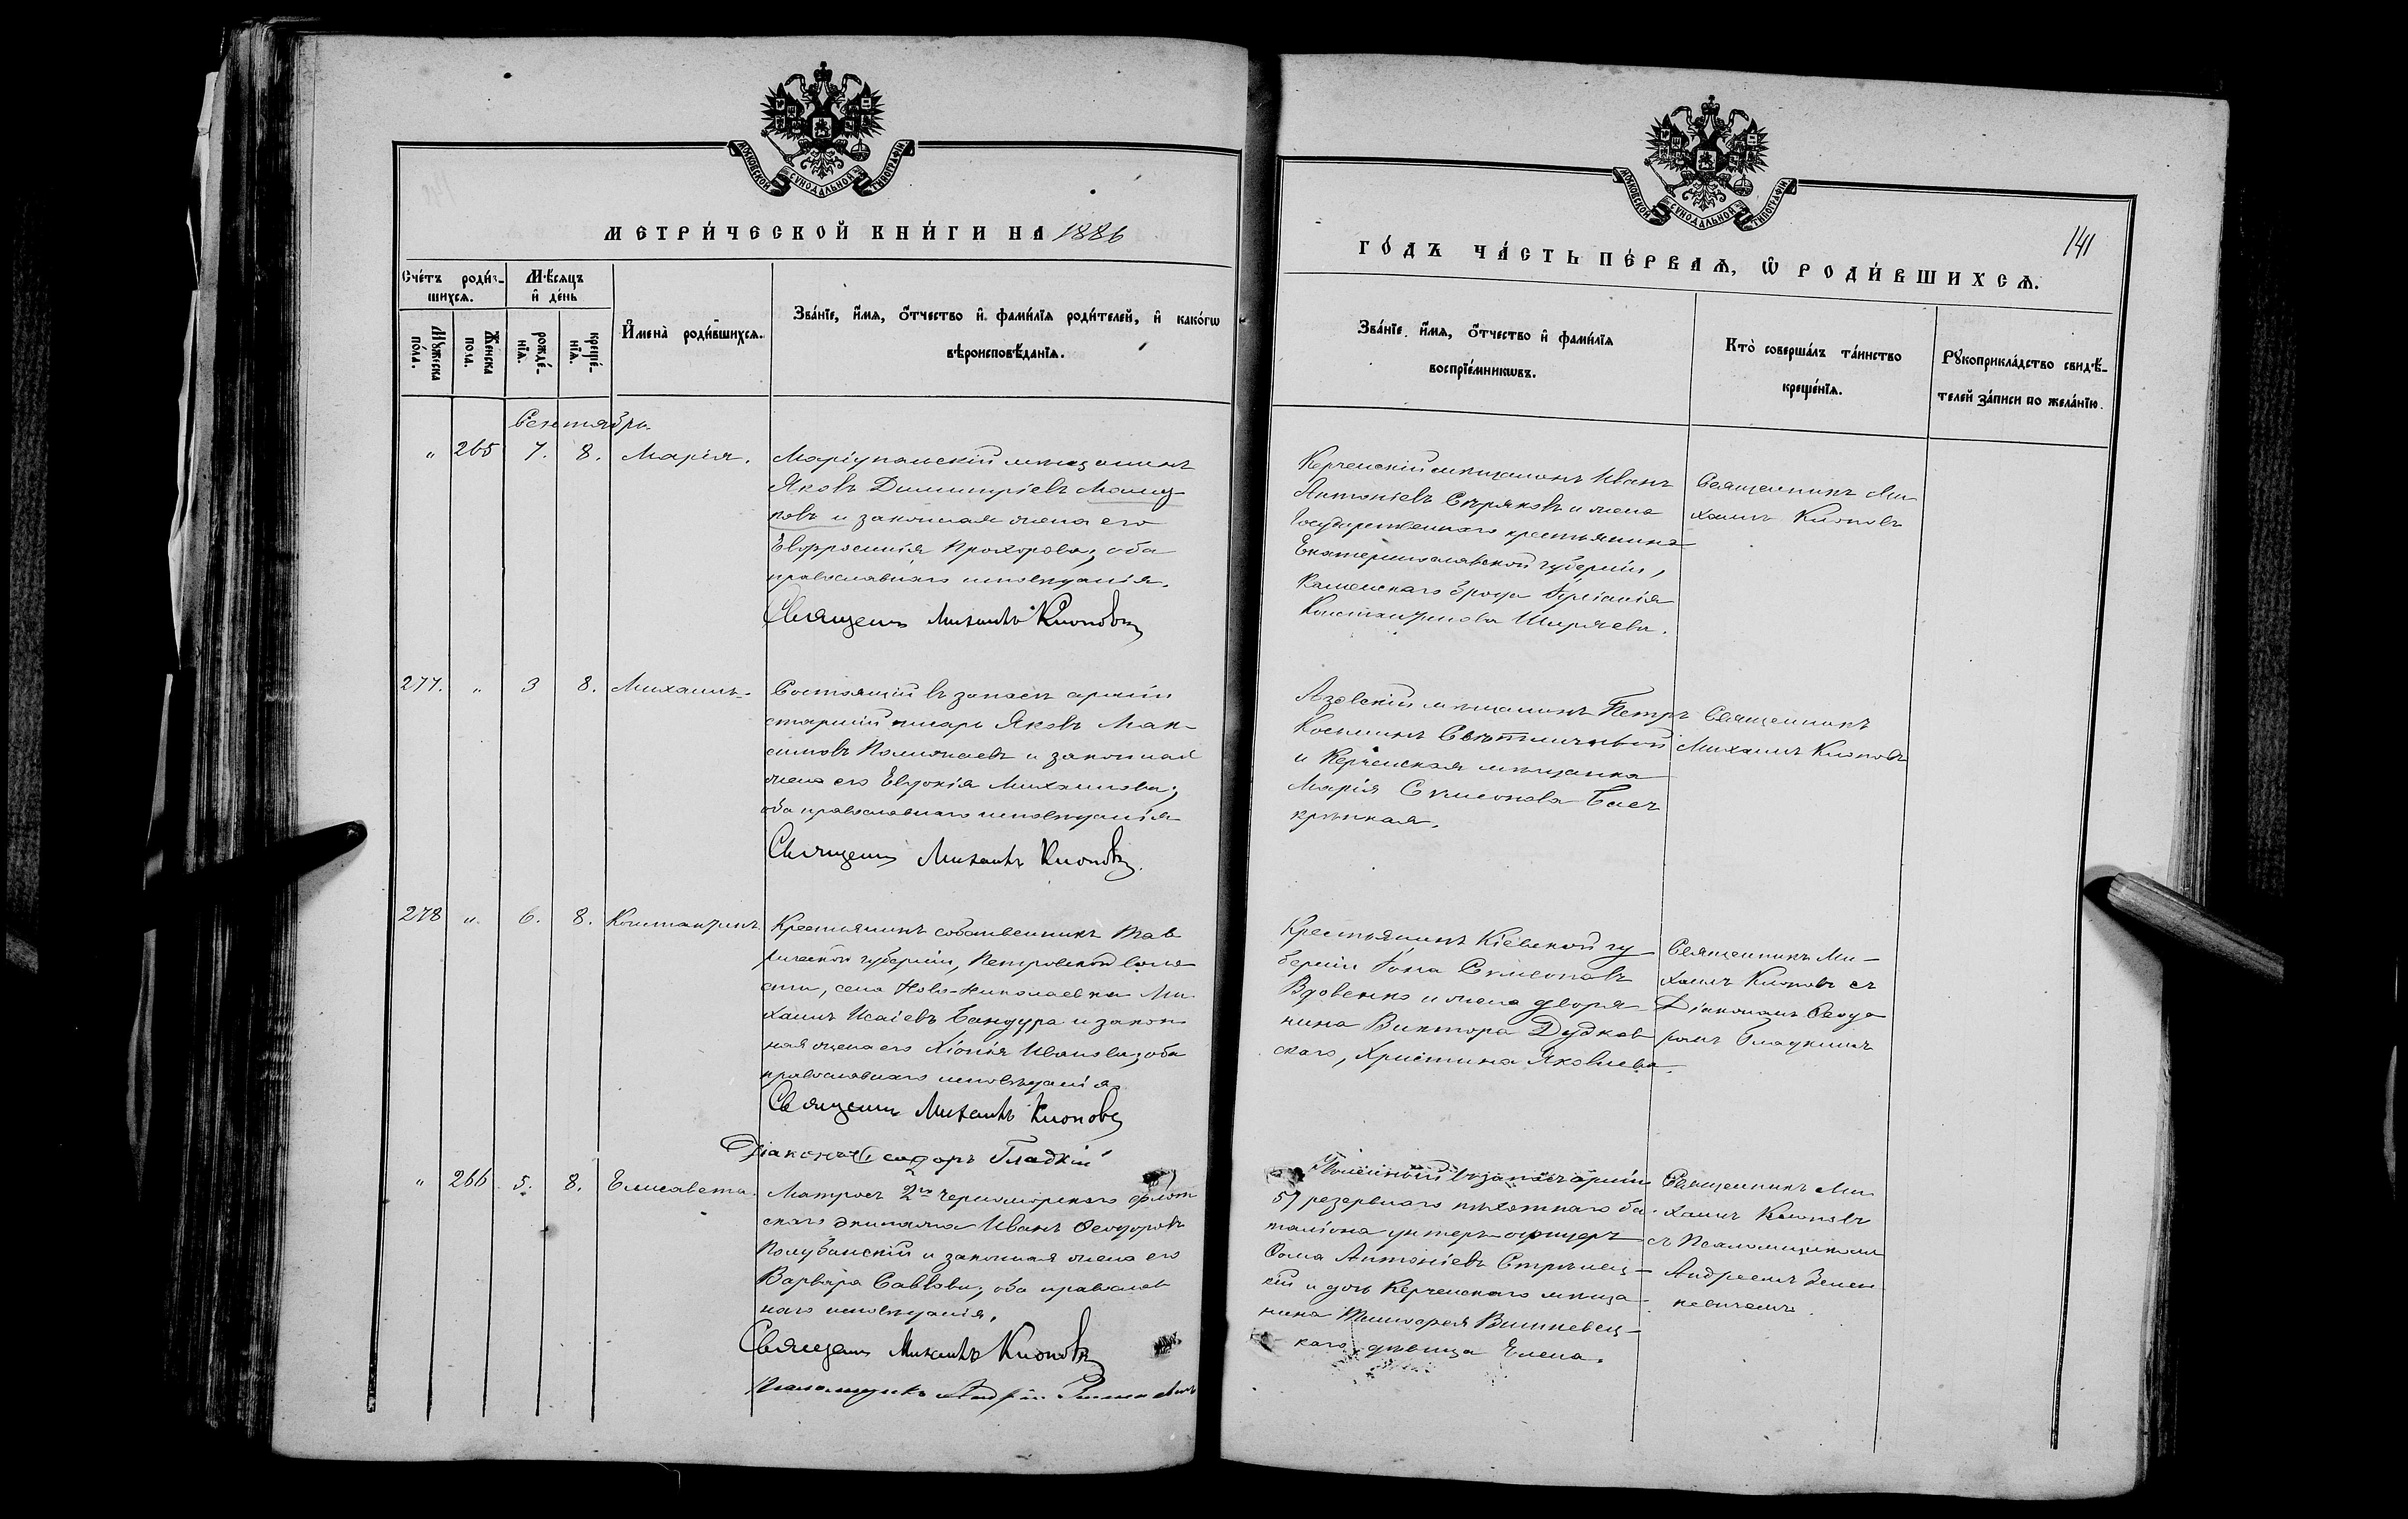 МОСКОВСКОЙ СѴНОДАЛЬНОЙ ТИПОГРАФІИ
МЕТРИ́ЧЕСКОЙ КНИ́ГИ НА 1886
Сче́тъ роди́в-
шихсѧ.
Мѣ́сѧцъ
и҆ де́нь
Мꙋ́жеска
по́ла.
Же́нска
по́ла.
рожде́-
нїѧ.
креще́-
нїѧ.
И҆мена̀ роди́вшихсѧ.
Зва́нїе, и҆́мѧ, ѻ҆́тчество и҆ фами́лїѧ роди́телей, и҆ како́гѡ
вѣроисповѣ́данїѧ.
Сентябрь.
" 265 7. 8. Марія.
Маріупольскій мѣщанинъ
Яковъ Димитріевъ
и законная жена его
Евфросинія Прохорова; оба
православнаго исповѣданія.
Священн Михаилъ Клоповъ
277. " 3 8. Михаилъ.
Состоящій въ запасѣ арміи
старшій писарь Яковъ Мак-
симовъ и законная
жена его Евдокія Михаилова;
оба православнаго исповѣданія
Священн Михаилъ Клоповъ.
278 " 6. 8. Константинъ
Крестьянинъ собственникъ Тав
рической губерніи, Петровской воло
сти, села Ново-Николаевки Ми
хаилъ Исаіевъ Бандура и закон
ная жена его Хіонія Иванова; оба
православнаго исповѣданія.
Священн Михаилъ Клоповъ
Діаконъ Ѳеодоръ Гладкій
" 266 5. 8. Елисавета.
Матросъ 2го Черноморскаго флот
скаго экипажа Иванъ Ѳеодоровъ
и законная жена его
Варвара Саввова; оба православ
наго исповѣданія.
Священн Михаилъ Клоповъ
Псаломщикъ Андрей
ГО́ДЪ ЧА́СТЬ ПЕ́РВАѦ, Ѡ҆ РОДИ́ВШИХСѦ.
141
Зва́нїе, и҆́мѧ, ѻ҆́тчество и҆ фами́лїѧ
воспрїе́мникѡвъ.
Кто̀ соверша́лъ та́инство
креще́нїѧ.
Рꙋкоприкла́дство свидѣ́-
телей за́писи по жела́нїю.
Керченскій мѣщанинъ Иванъ
Антоніевъ Сѣряковъ и жена
Государственнаго крестьянина
Екатеринославской губерніи,
Каменскаго брода Іуліанія
Константинова Ширяева.
Священникъ Ми
хаилъ Клоповъ
Азовскій мѣщанинъ Петръ
Косьминъ Свѣтличный
и Керченская мѣщанка
Марія Сѵмеонова
Священникъ
Михаилъ Клоповъ
Крестьянинъ Кіевской гу
берніи Іона Сѵмеоновъ
Вдовенко и жена дворя
нина Виктора Дудков
скаго, Христина Яковлева.
Священникъ Ми-
хаилъ Клоповъ съ
Діакономъ Ѳеодо
ромъ Гладкимъ
въ запасъ арміи
57 резервнаго пѣхотнаго ба-
таліона унтеръ-офицеръ
Ѳома Антоніевъ Стрѣлец-
кій и дочь Керченскаго мѣща-
нина Тимофея Вишневец-
каго, дѣвица Елена.
Священникъ Ми
хаилъ Клоповъ
съ Псаломщикомъ
Андреемъ Зелен
кевичемъ.